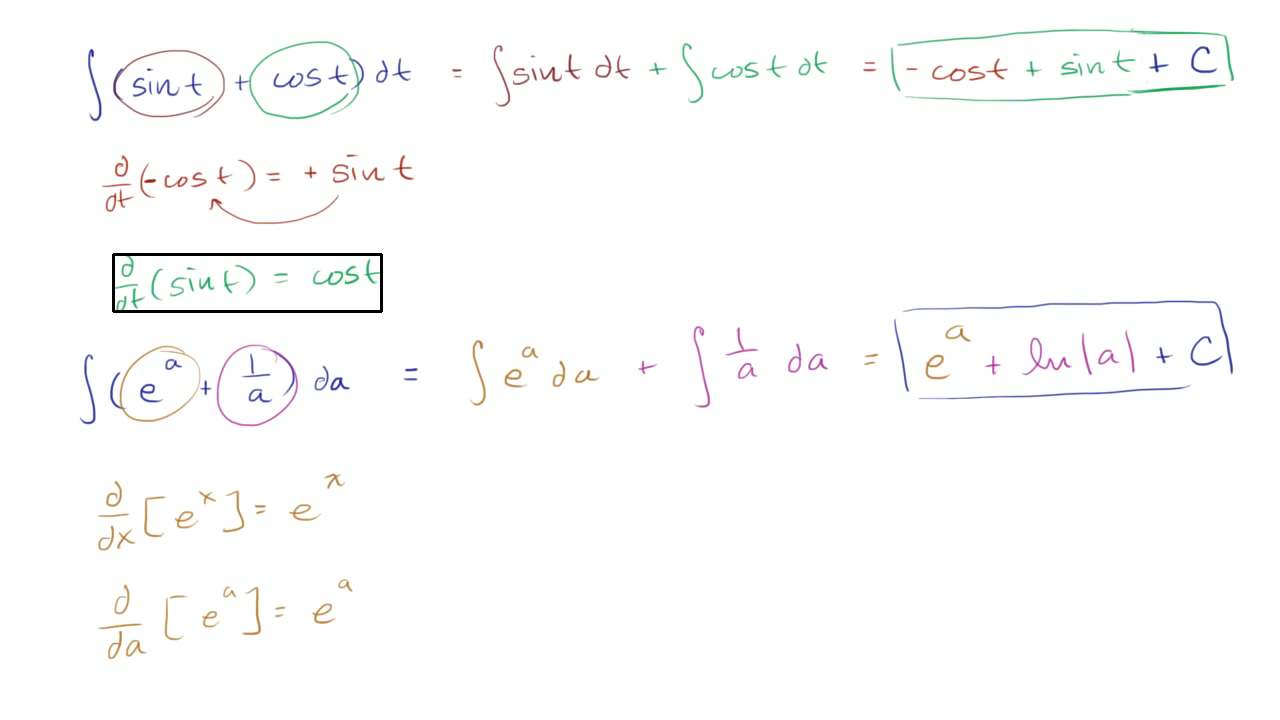 ∫(sin t + cos t) dt = ∫ sin t dt + ∫ cos t dt = - cos t + sin t + C
d/dt (-cos t) = + sin t
d/dt (sin t) = cos t
∫(e^a + 1/a) da = ∫ e^a da + ∫ 1/a da = e^a + ln|a| + C
d/dx [e^x] = e^x
d/da [e^a] = e^a